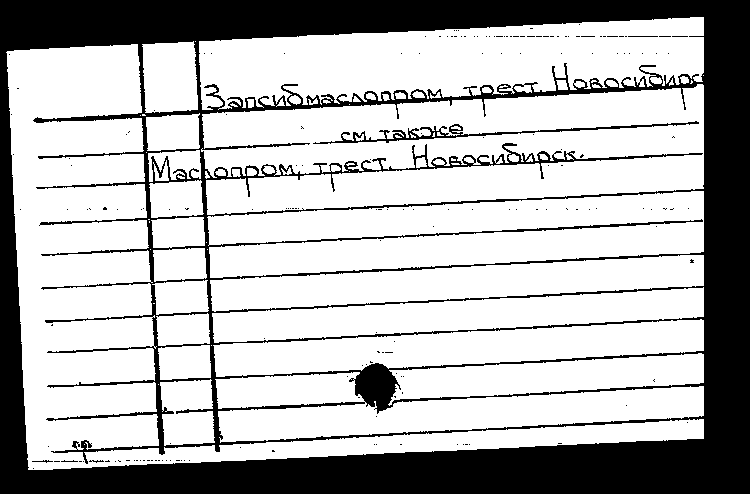 Запсибмаслопром, трест. Новосибирс
см. также
Маслопром, трест. Новосибирск.